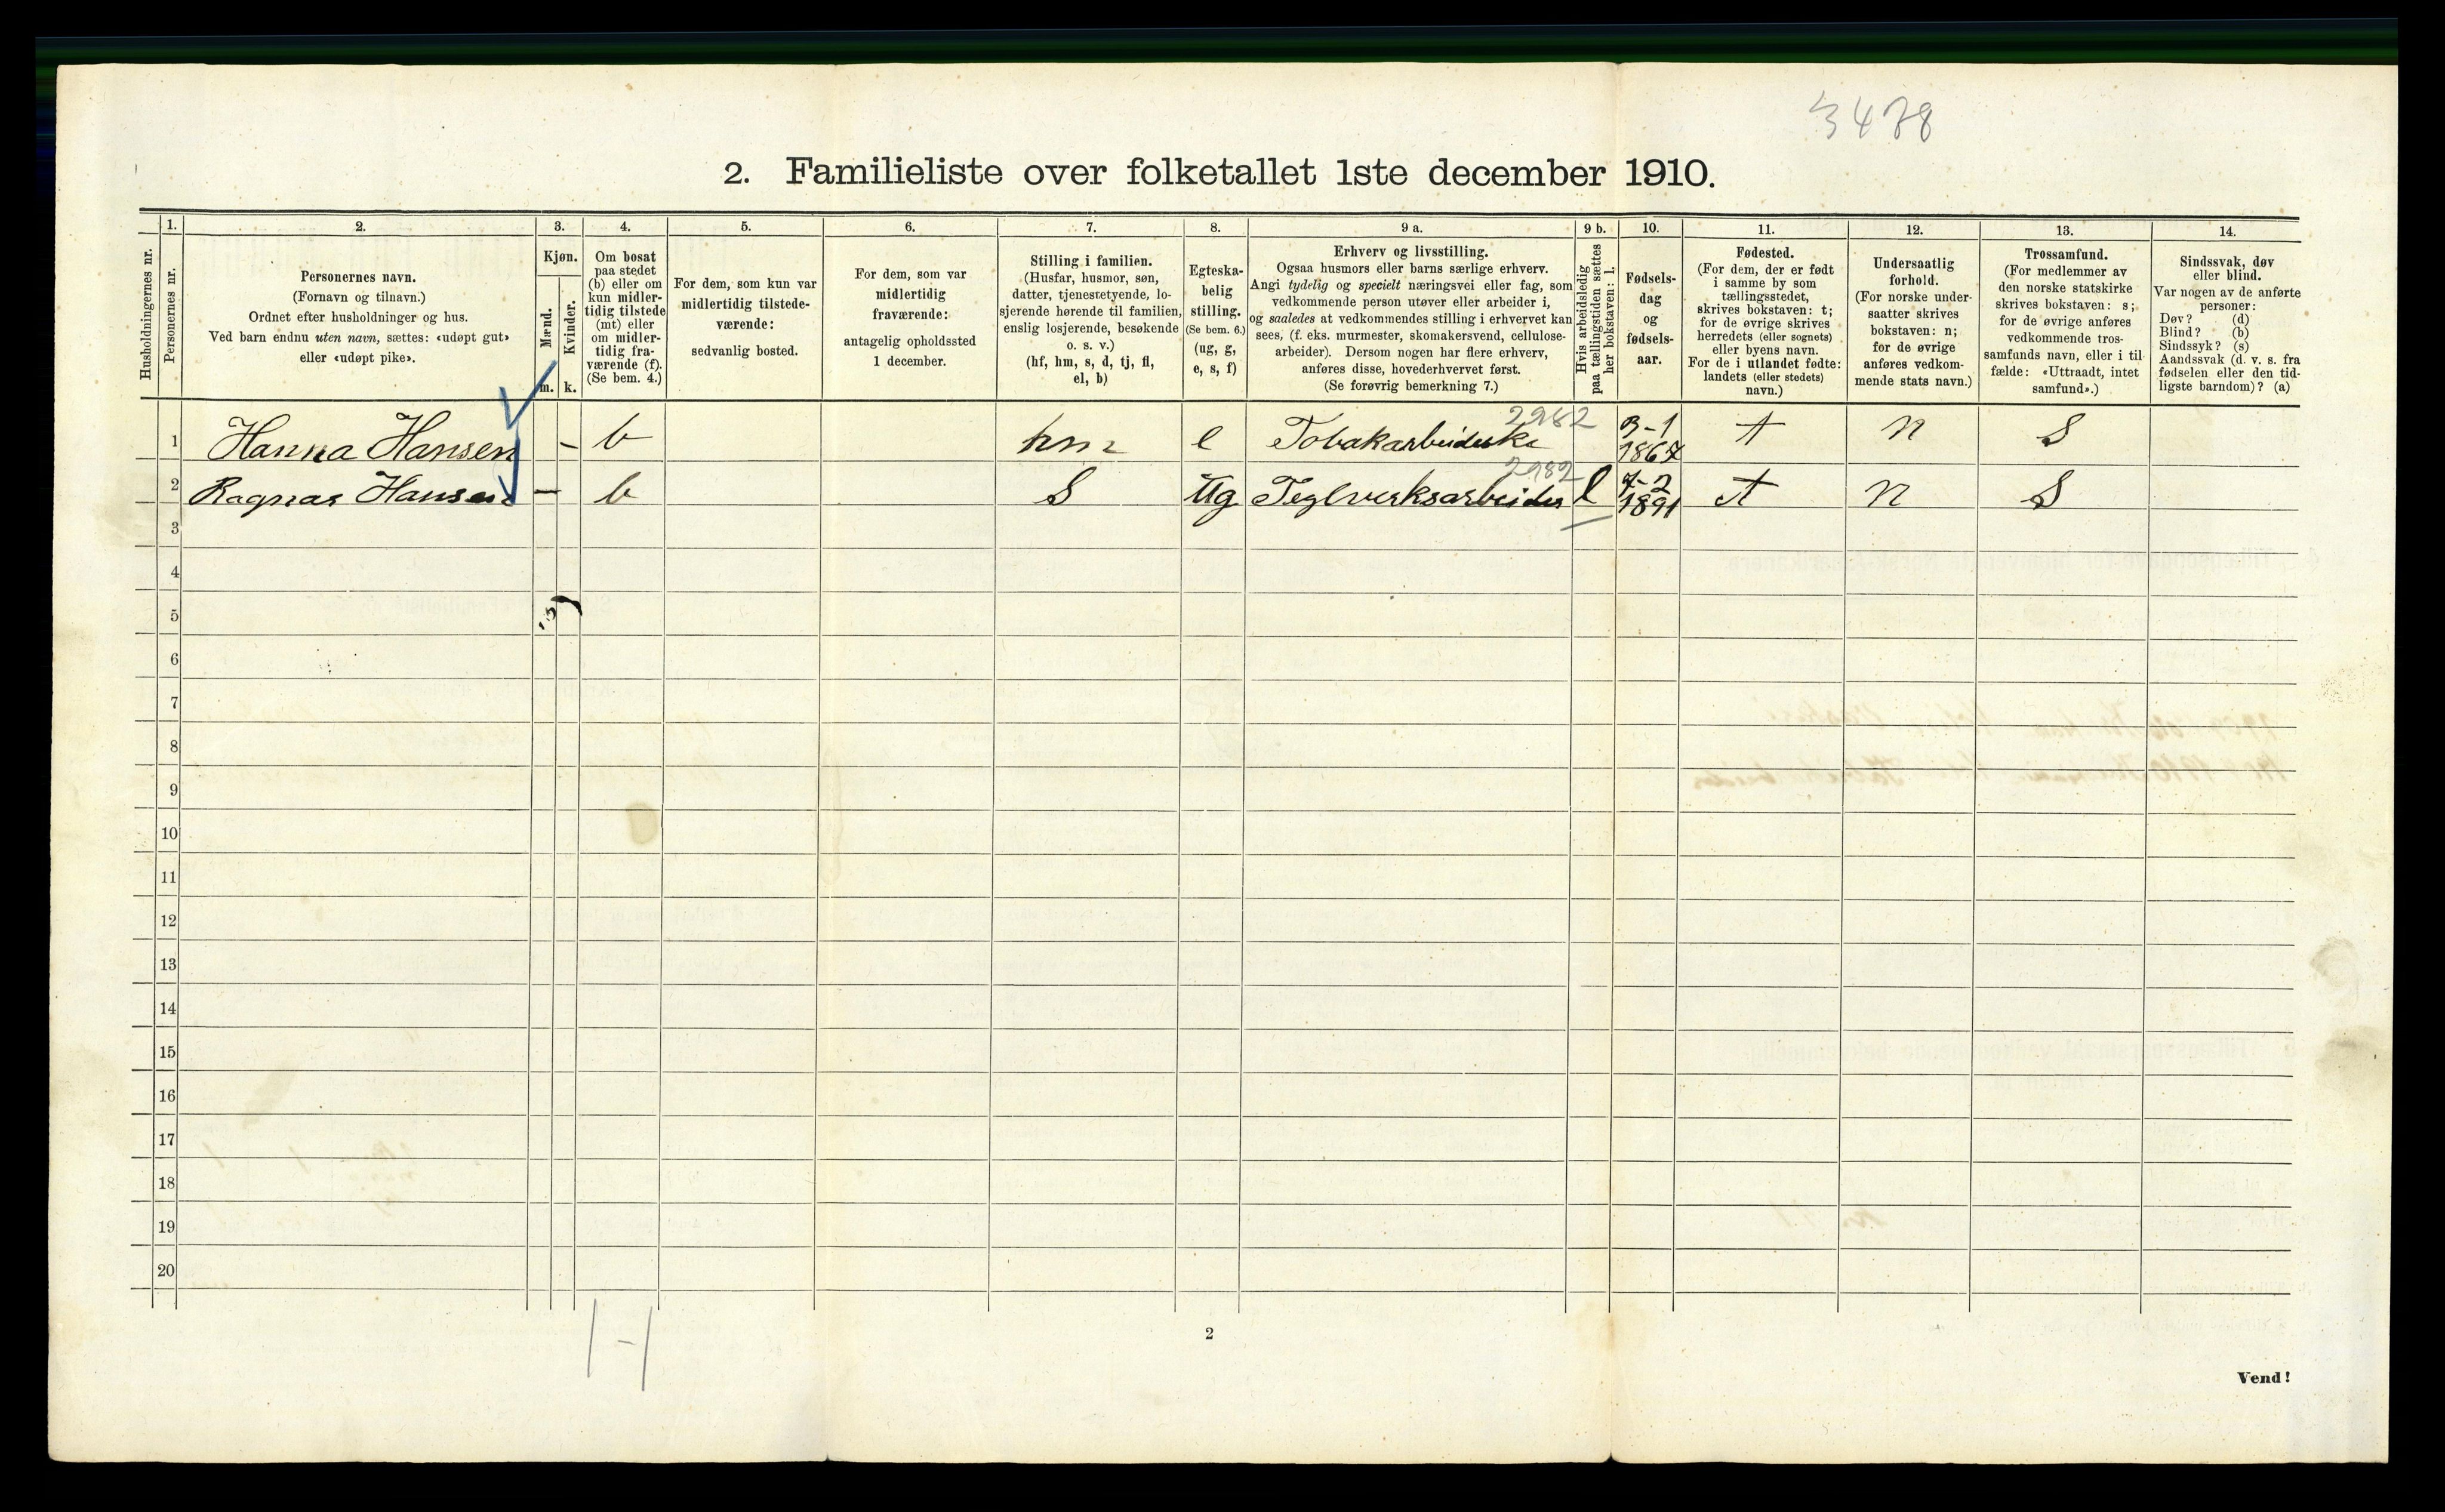 3478
2. Familieliste over folketallet 1ste december 1910.
Husholdningernes nr.
1.
Personernes nr.
2.
Personernes navn.
(Fornavn og tilnavn.)
Ordnet efter husholdninger og hus.
Ved barn endnu uten navn, sættes: «udøpt gut»
eller «udøpt pike».
3.
Kjøn.
Mænd.
Kvinder.
m. k.
4.
Om bosat
paa stedet
(b) eller om
kun midler-
tidig tilstede
(mt) eller
om midler-
tidig fra-
værende (f).
(Se bem. 4.)
5.
For dem, som kun var
midlertidig tilstede-
værende:
sedvanlig bosted.
6.
For dem, som var
midlertidig
fraværende:
antagelig opholdssted
1 december.
7.
Stilling i familien.
(Husfar, husmor, søn,
datter, tjenestetyende, lo-
sjerende hørende til familien,
enslig losjerende, besøkende
o. s. v.)
(hf, hm, s, d, tj, fl,
el, b)
8.
Egteska-
belig
stilling.
(Se bem. 6.)
(ug, g,
e, s, f)
9 a.
Erhverv og livsstilling.
Ogsaa husmors eller barns særlige erhverv.
Angi tydelig og specielt næringsvei eller fag, som
vedkommende person utøver eller arbeider i,
og saaledes at vedkommendes stilling i erhvervet kan
sees, (f. eks. murmester, skomakersvend, cellulose-
arbeider). Dersom nogen har flere erhverv,
anføres disse, hovederhvervet først.
(Se forøvrig bemerkning 7.)
9 b.
Hvis arbeidsledig
paa tællingstiden sættes
her bokstaven: l.
10.
Fødsels-
dag
og
fødsels-
aar.
11.
Fødested.
(For dem, der er født
i samme by som
tællingsstedet,
skrives bokstaven: t;
for de øvrige skrives
herredets (eller sognets)
eller byens navn.
For de i utlandet fødte:
landets (eller stedets)
navn.)
12.
Undersaatlig
forhold.
(For norske under-
saatter skrives
bokstaven: n;
for de øvrige
anføres vedkom-
mende stats navn.)
13.
Trossamfund.
(For medlemmer av
den norske statskirke
skrives bokstaven: s;
for de øvrige anføres
vedkommende tros-
samfunds navn, eller i til-
fælde: «Uttraadt, intet
samfund».)
14.
Sindssvak, døv
eller blind.
Var nogen av de anførte
personer:
Døv? (d)
Blind? (b)
Sindssyk? (s)
Aandssvak (d. v. s. fra
fødselen eller den tid-
ligste barndom)? (a)
1 Hanna Hansen – b hm e Tobakarbeiderske 2982 3-1 1867 t n S
2 Ragnar Hansen – b S Ug Teglverksarbeider 2982 l 7-2 1891 t n S
3
4
5
6
7
8
9
10
11
12
13
14
15
16
17
18
19
20
1-1
2
Vend!